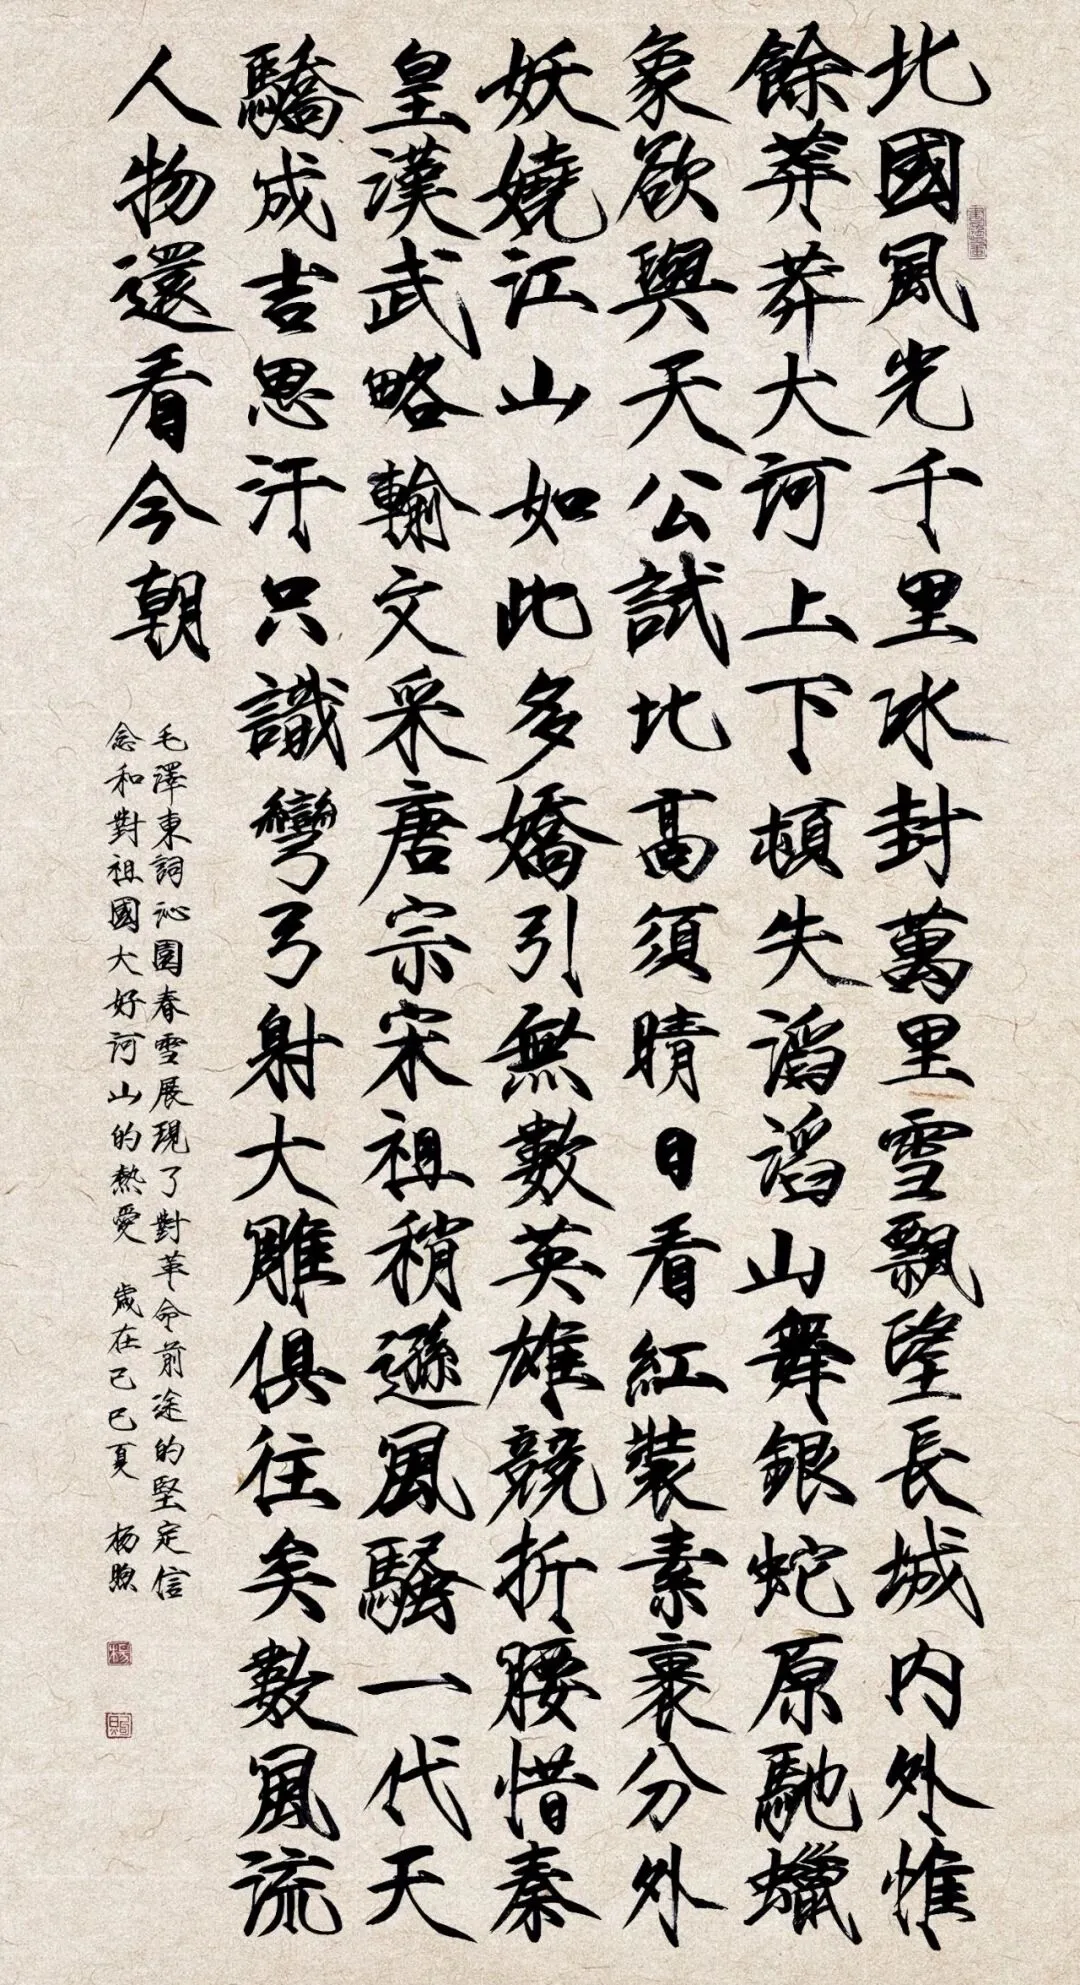 北國風光千里冰封萬里雪飄望長城内外惟
餘莽莽大河上下頓失滔滔山舞銀蛇原馳蠟
象欲與天公試比高須晴日看紅裝素裹分外
妖嬈江山如此多嬌引無數英雄競折腰惜秦
皇漢武略輸文采唐宗宋祖稍遜風騷一代天
驕成吉思汗只識彎弓射大雕俱往矣數風流
人物還看今朝
毛澤東詞沁園春雪展現了對革命前途的堅定信
念和對祖國大好河山的熱愛 歲在己巳夏 杨煦
楊